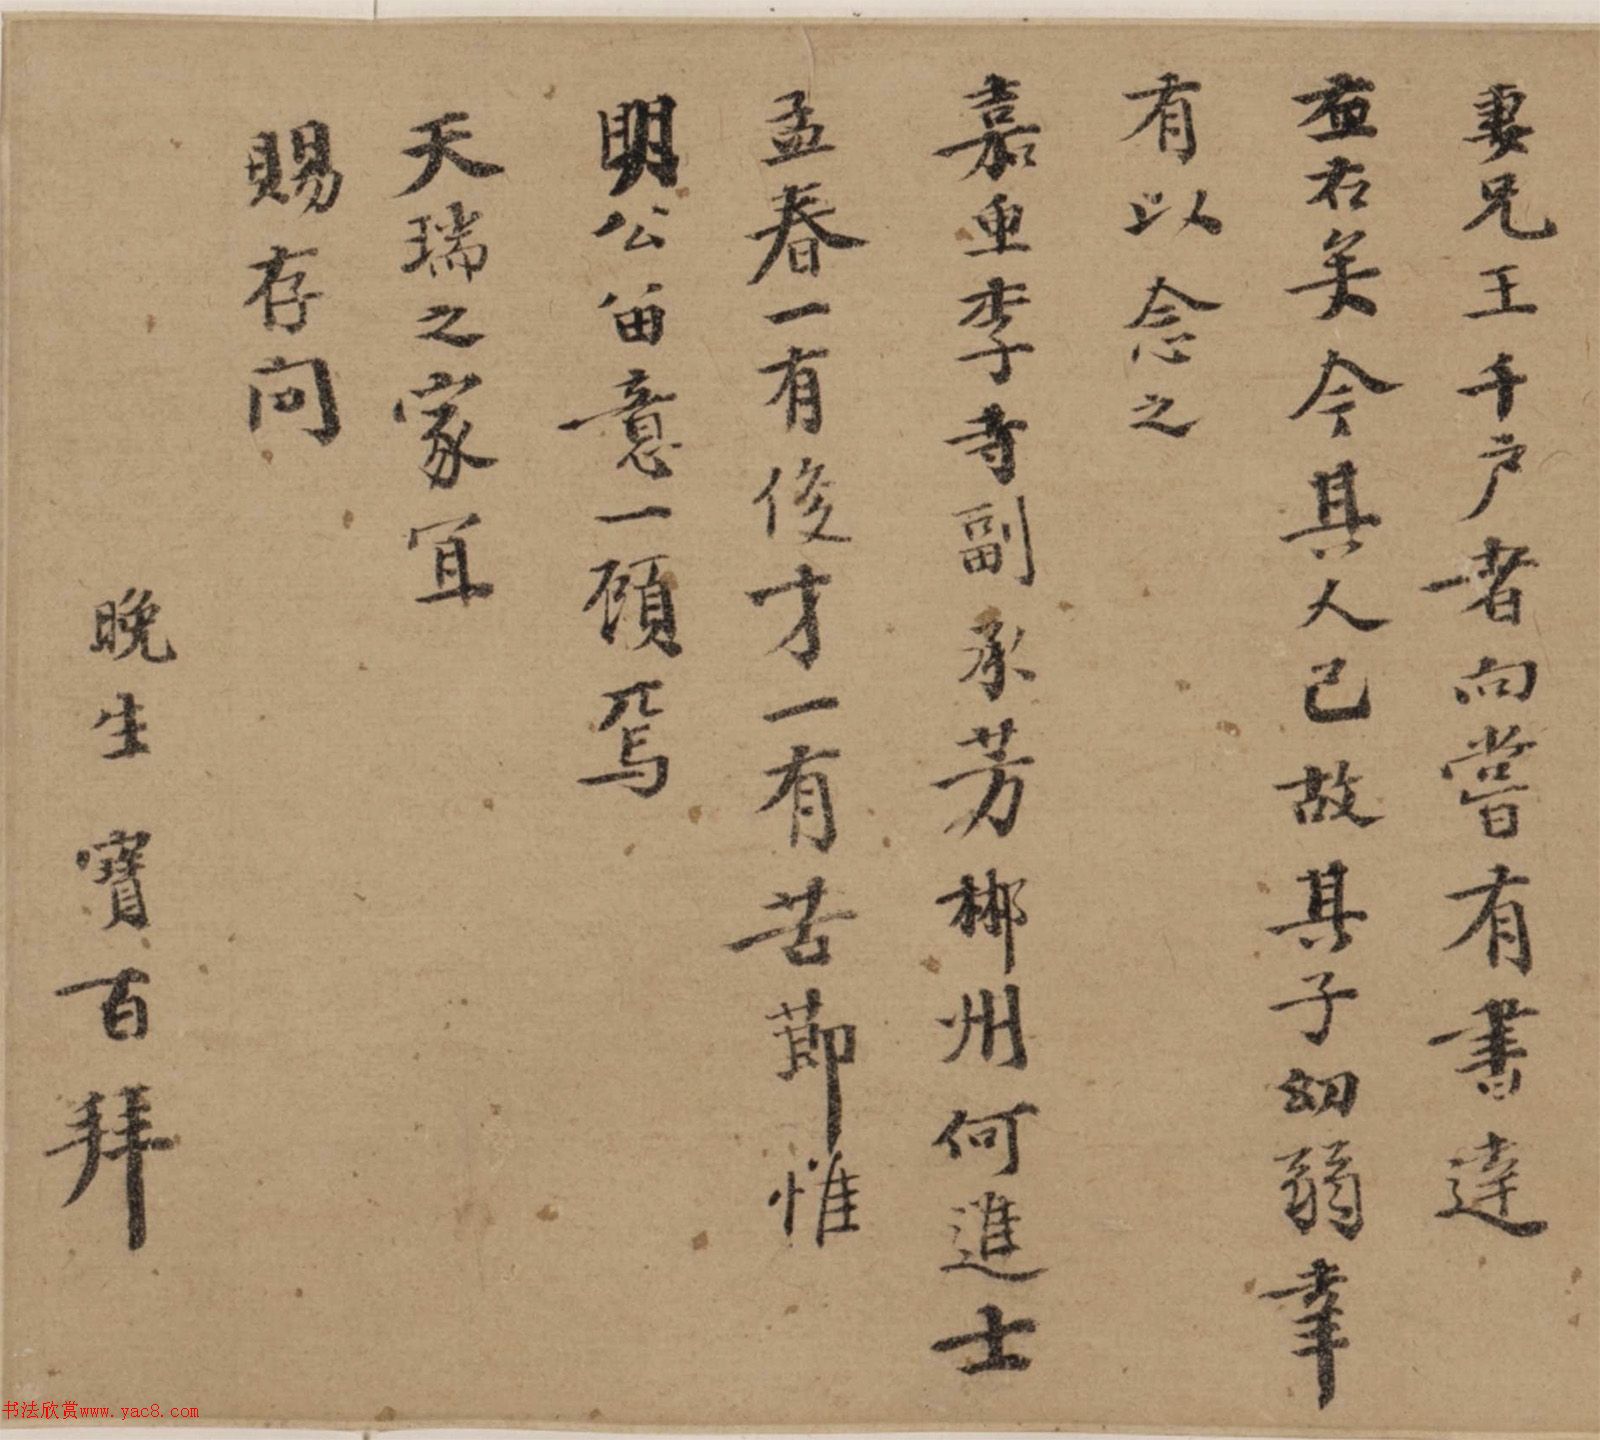 妻兄王千户者向嘗有書達
盍右矣今其人已故其子幼弱幸
有以念之
嘉重李寺副承芳郴州何進士
孟春一有俊才一有苦節惟
明公留意一顧焉
天瑞之家宜
賜存问
晚生寶百拜
书法欣赏www.yac8.com